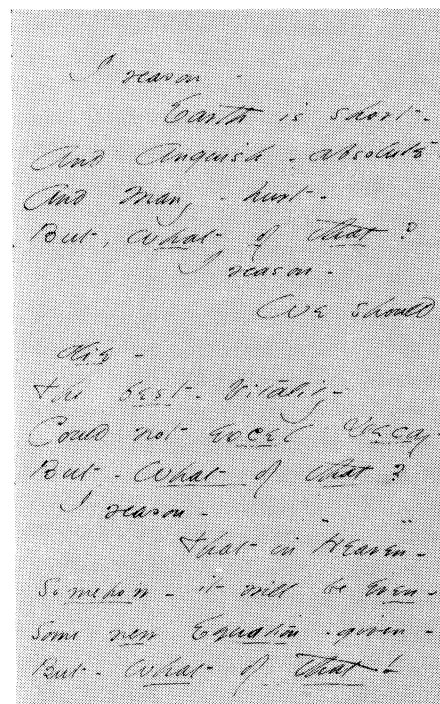 I reason -
Earth is short -
And Anguish - absolute
And many - hurt -
But, What of that?
I reason -
We should
die -
The best - Vitality
Could not excel Decay -
But - What of that?
I reason -
that in "Heaven" -
Somehow - it will be even -
Some new Equation - given -
But - What of that!